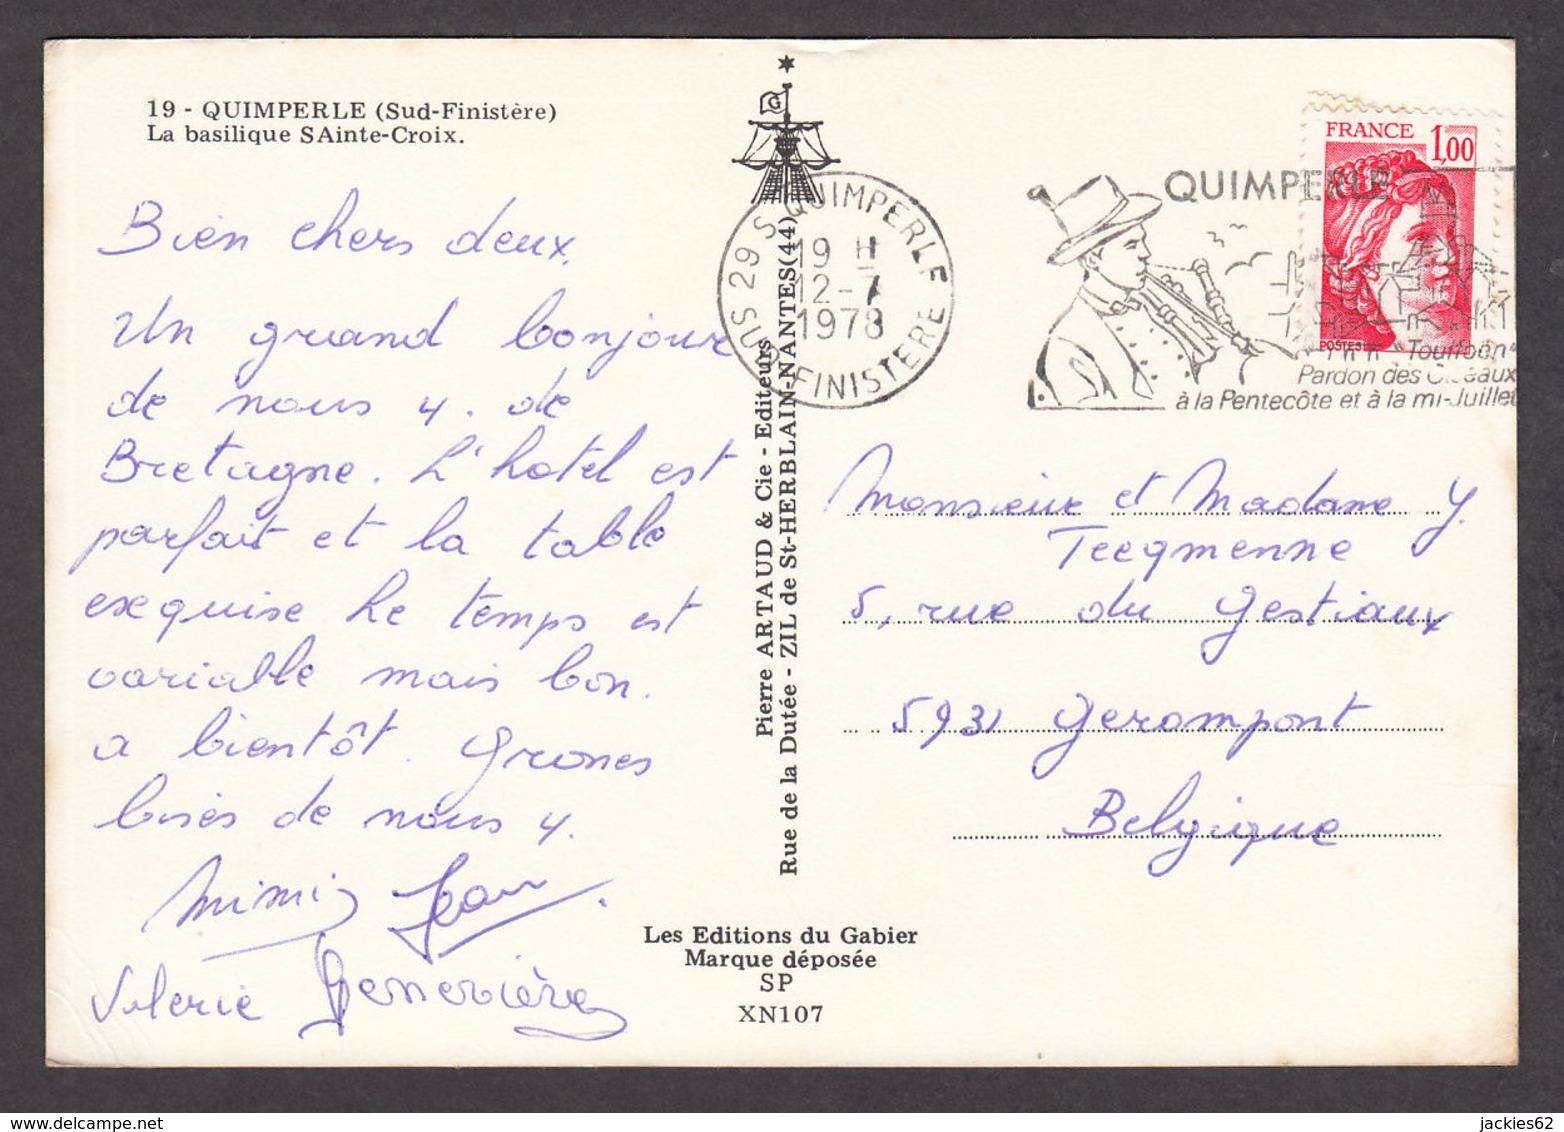 19 - QUIMPERLE (Sud-Finistère)
La basilique SAinte-Croix.
Bien chers deux.
Un grand bonjour
de nous 4. de
Bretagne. L'hotel est
parfait et la table
exquise Le temps est
variable mais bon.
a bientôt. Grones
bises de nous 4.
Mimi Jean
Valerie Geneviève
Pierre ARTAUD & Cie - Editeurs
Rue de la Dutée - ZIL de St-HERBLAIN-NANTES(44)
G
29 S QUIMPERLE
19 H
12-7
1978
SUD FINISTERE
QUIMPERLE
"Toulfoën"
Pardon des Oiseaux
à la Pentecôte et à la mi-Juillet
FRANCE 1,00
POSTES
Monsieur et Madame Y.
Teeqmenne
5, rue du Gestiaux
5931 Gerompont
Belgique
Les Editions du Gabier
Marque déposée
SP
XN107
jackies62